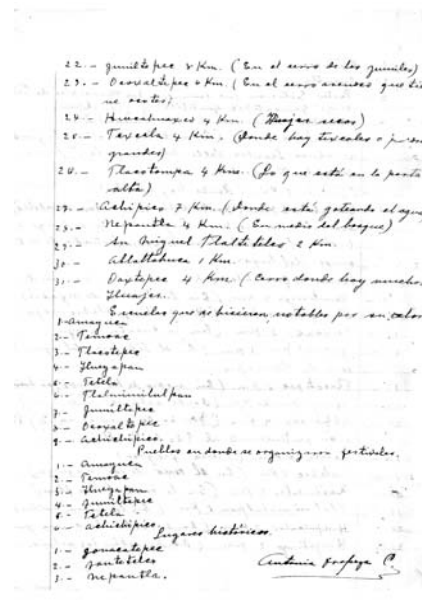 22.- Jumiltepec 8 Km. (En el cerro de los jumiles)
23.- Ocoxaltepec 6 Km. (En el cerro que tie
ne ocotes)
24.- 4 Km. (Huajes secos)
25.- Texcala 4 Km. (Donde hay texcales o
grandes)
26.- Tlacotompa 4 Kms. (Lo que está en la parte
alta)
27.- Achipico 7 Km. (donde está goteando el agua
28.- Nepantla 4 Km. (En medio del bosque)
29.- Sn Miguel Tlalteteles 2 Km.
30.- 1 Km.
31.- Oaxtepec 4 Km. (Cerro donde hay muchos
Huajes.
Escuelas que se hicieron notables por su
1- Amayuca
2.- Temoac
3.- Tlacotepec
4.- Hueyapan
5.- Tetela
6.- Tlalmimilulpan
7.- Jumiltepec
8.- Ocoxaltepec
9.- Achichipico.
Pueblos en donde se organizaron festivales.
1.- Amayuca
2.- Temoac
3.- Hueyapam
4.- Jumiltepec
5.- Tetela
6.- Achichipico
Lugares históricos.
1.- Jonacatepec
2.-
3.- Nepantla.
Antonia C.